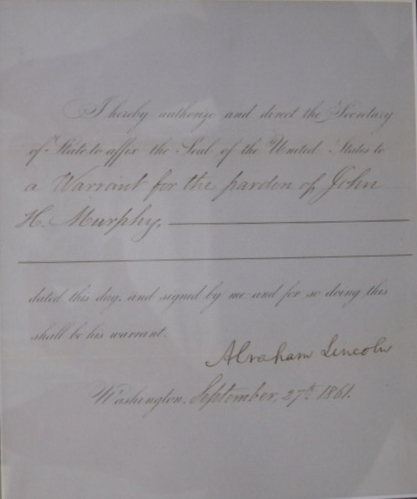 I hereby authorize and direct the Secretary
of State to affix the Seal of the United States to
a Warrant for the pardon of John
H. Murphy,
dated this day, and signed by me and for so doing this
shall be his warrant.
Abraham Lincoln
Washington, September, 27th 1861.